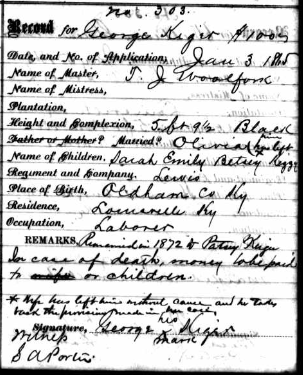 No. 303.
Record for George Kiger
Date, and No. of Application, Jan 3 1885
Name of Master, T. J. Woolfork
Name of Mistress,
Plantation,
Height and Complexion, 5 ft 9½ Black
Father or Mother? Married? Olivia has left
Name of Children, Sarah Emily Betsey
Regiment and Company, Lewis
Place of Birth, Oldham Co Ky
Residence, Louisville Ky
Occupation, Laborer
REMARKS, Remarried in 1872 to Patsy Kiger
In case of death, money to be paid
to wife or children.
Wife has left him without cause and he takes
back the provision made in her case
his
Signature, George Kiger
mark
Witness
S A Porter